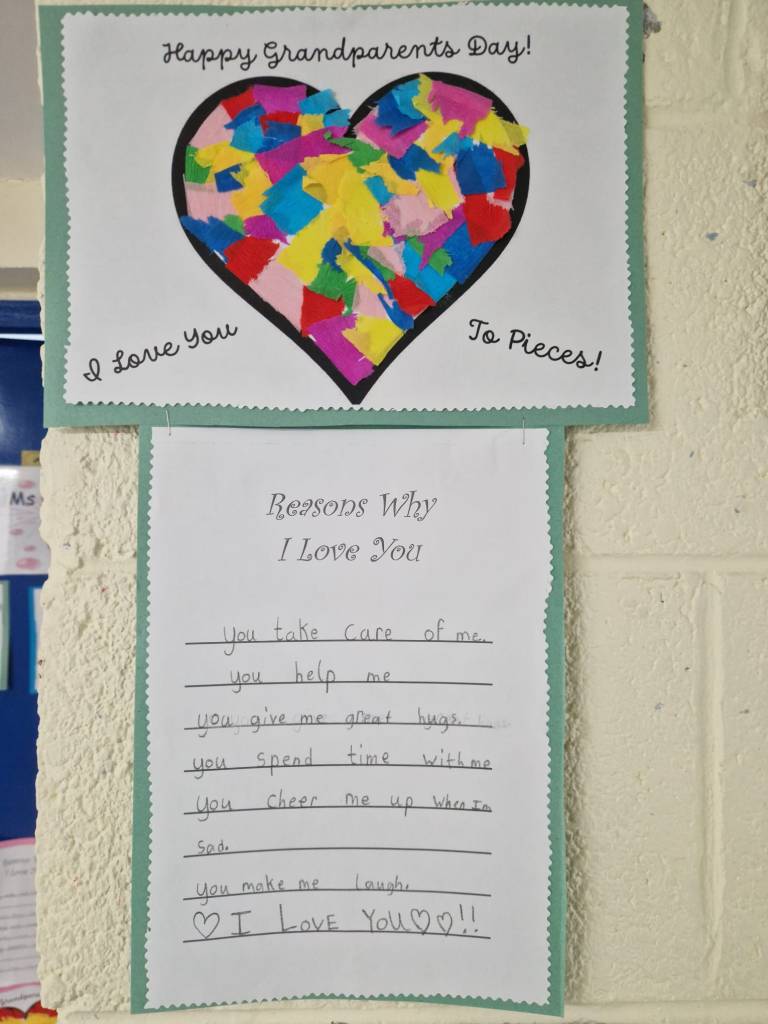 Happy Grandparents Day!
I Love You
To Pieces!
Reasons Why
I Love You
you take care of me.
you help me
you give me great hugs.
you spend time with me
you cheer me up when Im
sad.
you make me laugh.
♡ I LOVE YOU♡♡!!
Ms